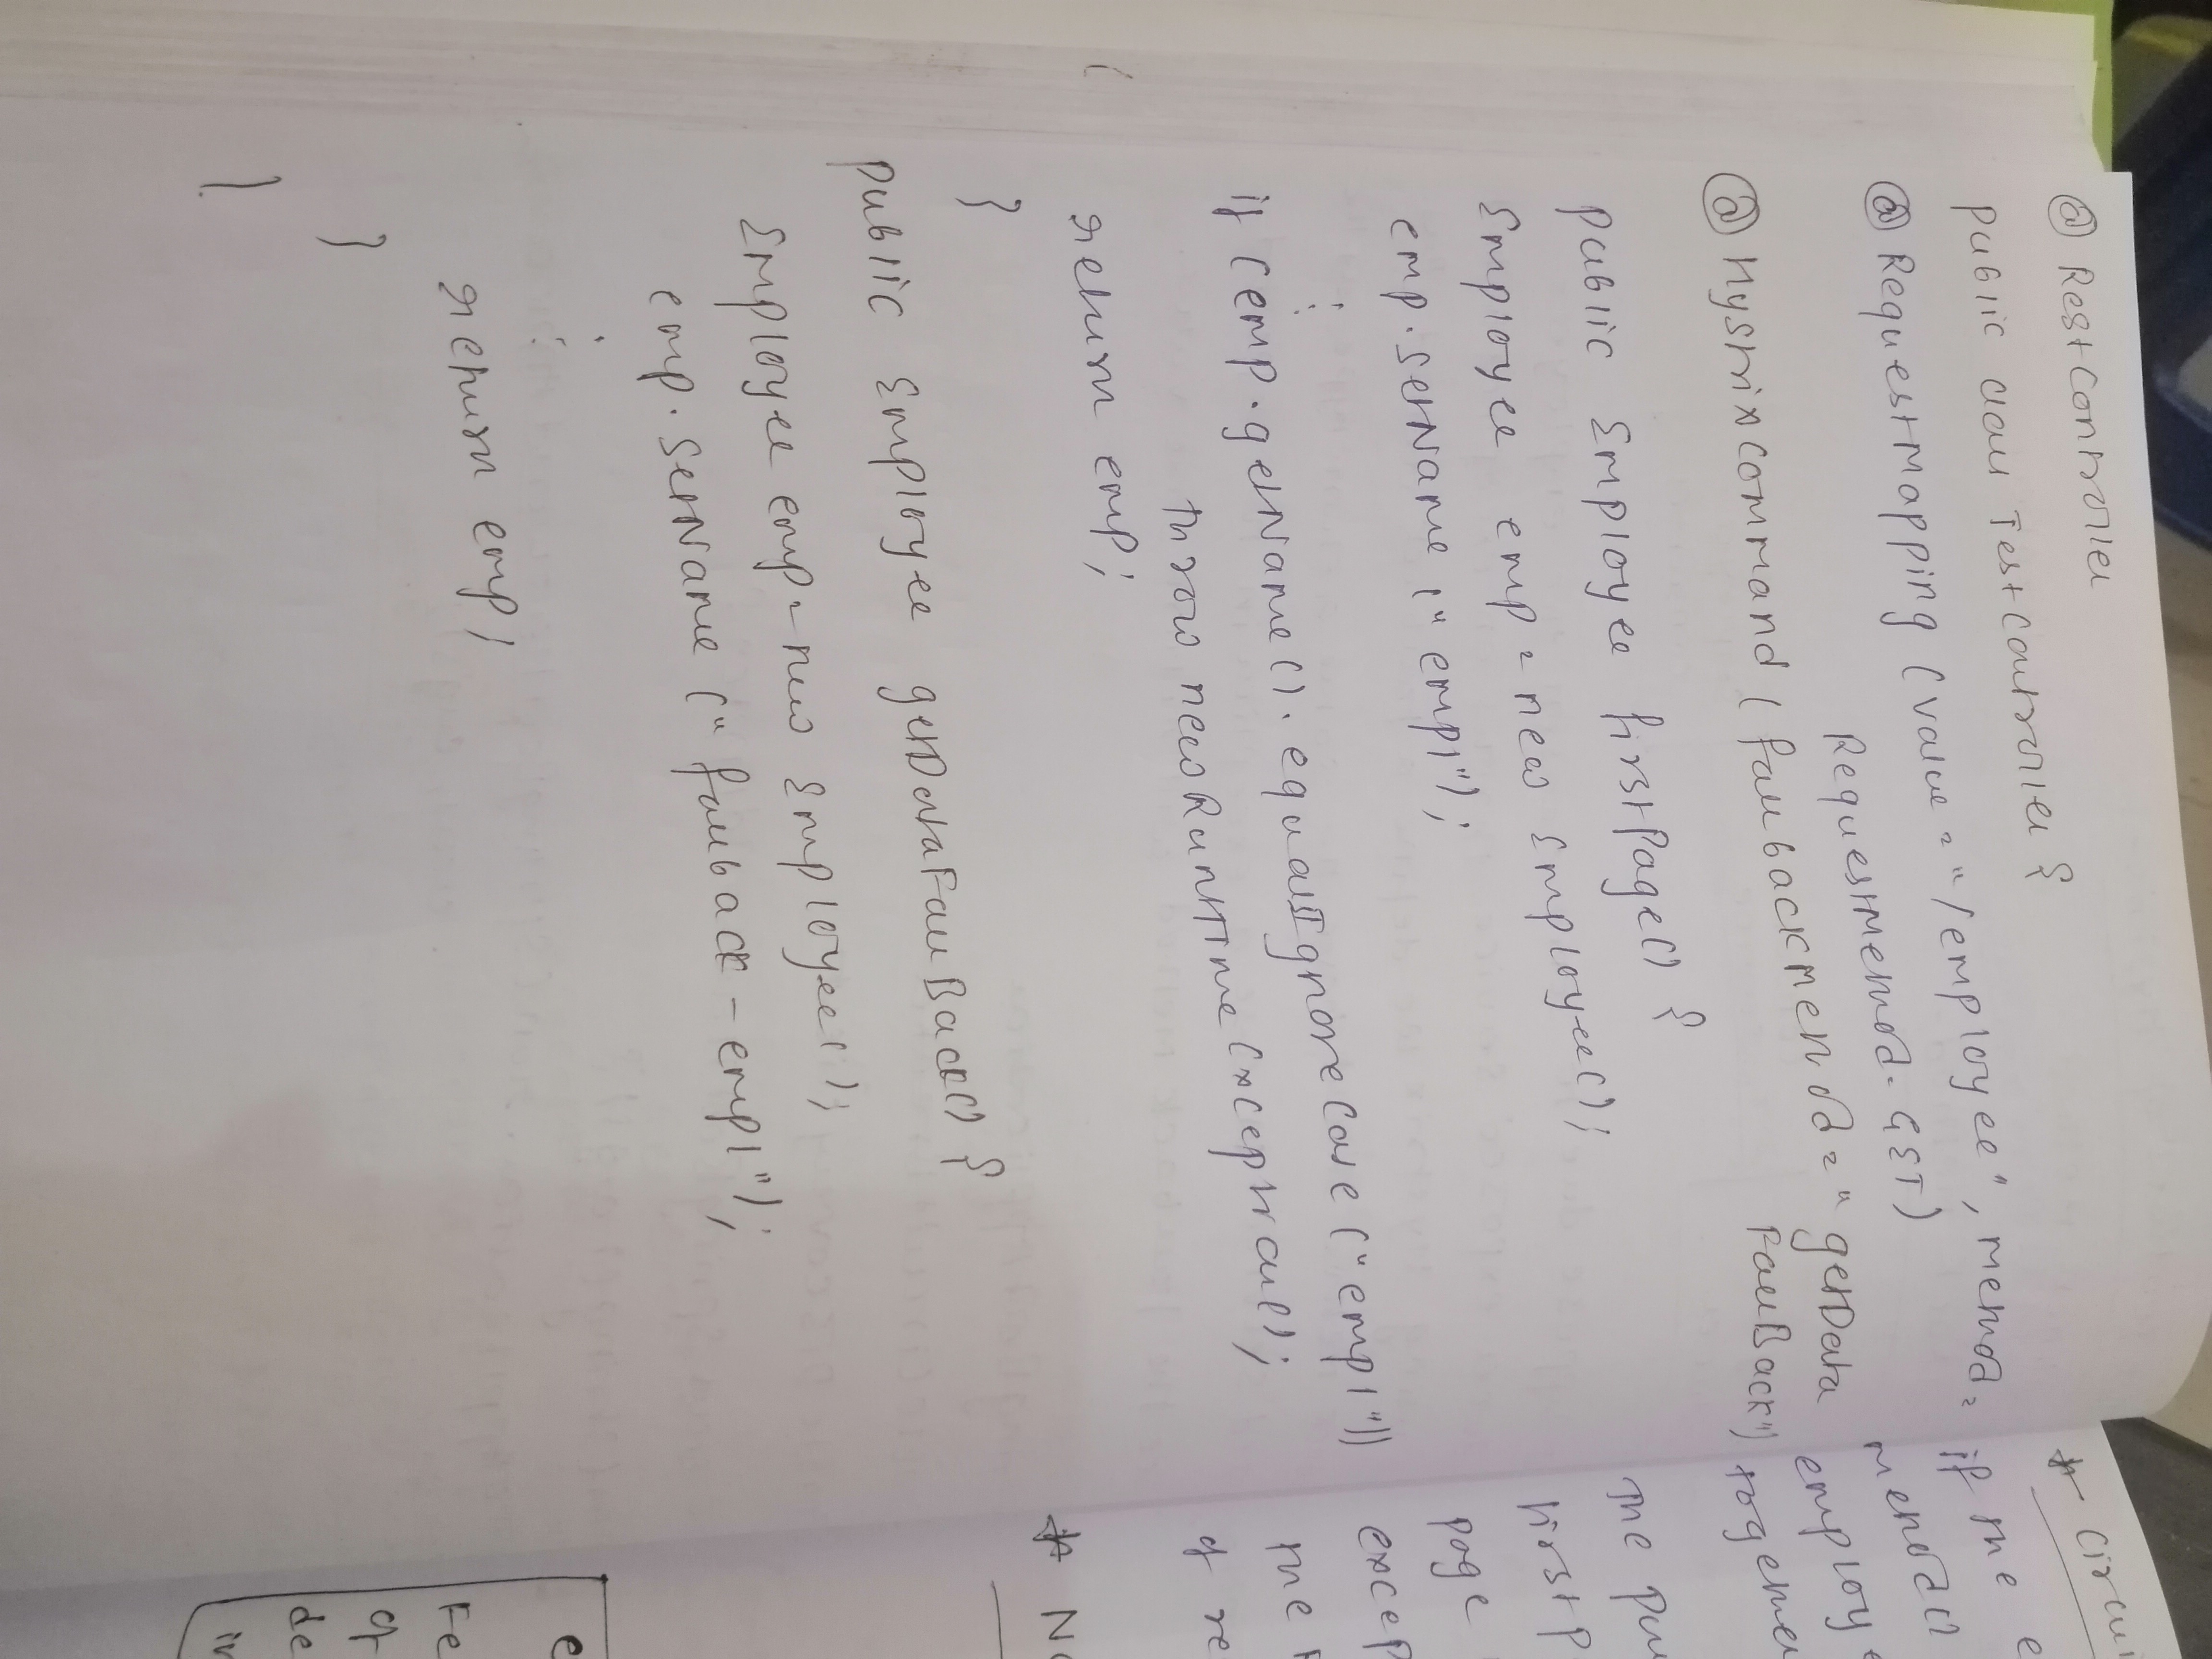 @ RestController
public class TestController {
@ RequestMapping (value = "/employee", method =
RequestMethod.GET)
@ HystrixCommand (fallbackMethod = "getData
FallBack")
public Employee firstPage() {
Employee emp = new Employee();
emp.setName ("emp1");
:
if (emp.getName().equalsIgnoreCase ("emp1"))
throw new RuntimeException();
return emp;
}
public Employee getDataFallBack() {
Employee emp = new Employee();
emp.setName ("fallback-emp1");
:
return emp;
}
}
* Circui
if the e
method
employ
together
The
first P
page
excep
the
of re
* N
e
Fe
de
in